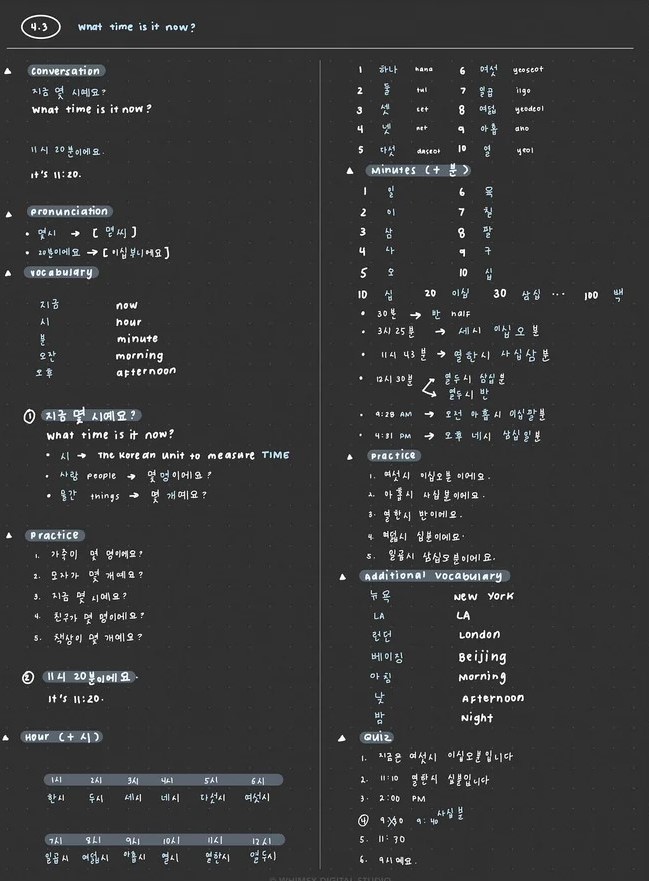 4.3 What time is it now?
conversation
지금 몇 시예요?
What time is it now?
11시 20분이에요.
it's 11:20.
pronunciation
몇시 → [ 멷씨 ]
20분이에요 → [ 이십부니에요 ]
vocabulary
지금 now
시 hour
분 minute
오전 morning
오후 afternoon
① 지금 몇 시예요?
What time is it now?
시 → The Korean unit to measure TIME
사람 people → 몇 명이에요?
물건 things → 몇 개예요?
practice
1. 가족이 몇 명이에요?
2. 모자가 몇 개예요?
3. 지금 몇 시예요?
4. 친구가 몇 명이에요?
5. 책상이 몇 개예요?
② 11시 20분이에요.
it's 11:20.
Hour (+ 시)
1시 2시 3시 4시 5시 6시
한시 두시 세시 네시 다섯시 여섯시
7시 8시 9시 10시 11시 12시
일곱시 여덟시 아홉시 열시 열한시 열두시
1 하나 hana 6 여섯 yeoseot
2 둘 tul 7 일곱 ilgo
3 셋 cet 8 여덟 yeodeol
4 넷 net 9 아홉 aho
5 다섯 daseot 10 열 yeol
Minutes (+ 분)
1 일 6 육
2 이 7 칠
3 삼 8 팔
4 사 9 구
5 오 10 십
10 십 20 이십 30 삼십 ... 100 백
30분 → 반 half
3시 25분 → 세시 이십오분
11시 43분 → 열한시 사십삼분
12시 30분 → 열두시 삼십분
→ 열두시 반
9:28 AM → 오전 아홉시 이십팔분
4:31 PM → 오후 네시 삼십일분
Practice
1. 여섯시 이십오분이에요.
2. 아홉시 사십분이에요.
3. 열한시 반이에요.
4. 여덟시 십분이에요.
5. 일곱시 삼십오분이에요.
Additional vocabulary
뉴욕 New York
LA LA
런던 London
베이징 Beijing
아침 Morning
낮 Afternoon
밤 Night
Quiz
1. 지금은 여섯시 이십오분입니다
2. 11:10 열한시 십분입니다
3. 2:00 PM
④ 9:40 사십분
5. 11:30
6. 9시예요.
© WHIMSY DIGITAL STUDIO